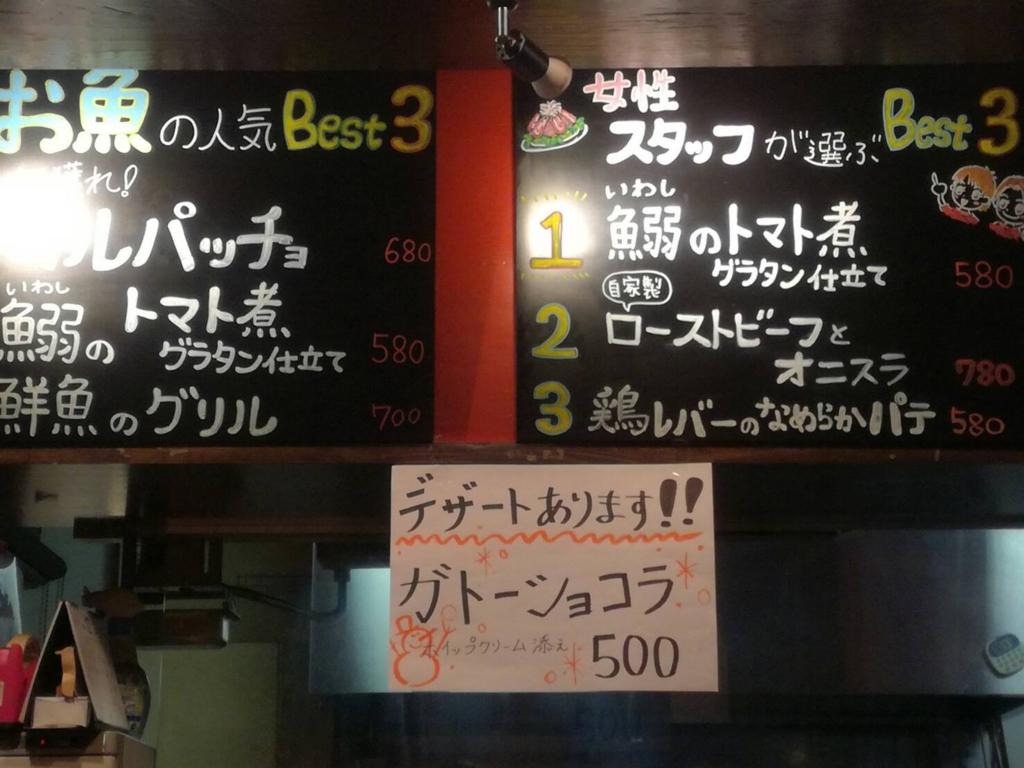 お魚の人気 Best 3
獲れ!
ルパッチョ 680
いわし
鰯のトマト煮
グラタン仕立て 580
鮮魚のグリル 700
女性
スタッフが選ぶ Best 3
いわし
1 鰯のトマト煮
グラタン仕立て 580
自家製
2 ローストビーフと
オニスラ 780
3 鶏レバーのなめらかパテ 580
デザートあります!!
ガトーショコラ
ホイップクリーム添え 500